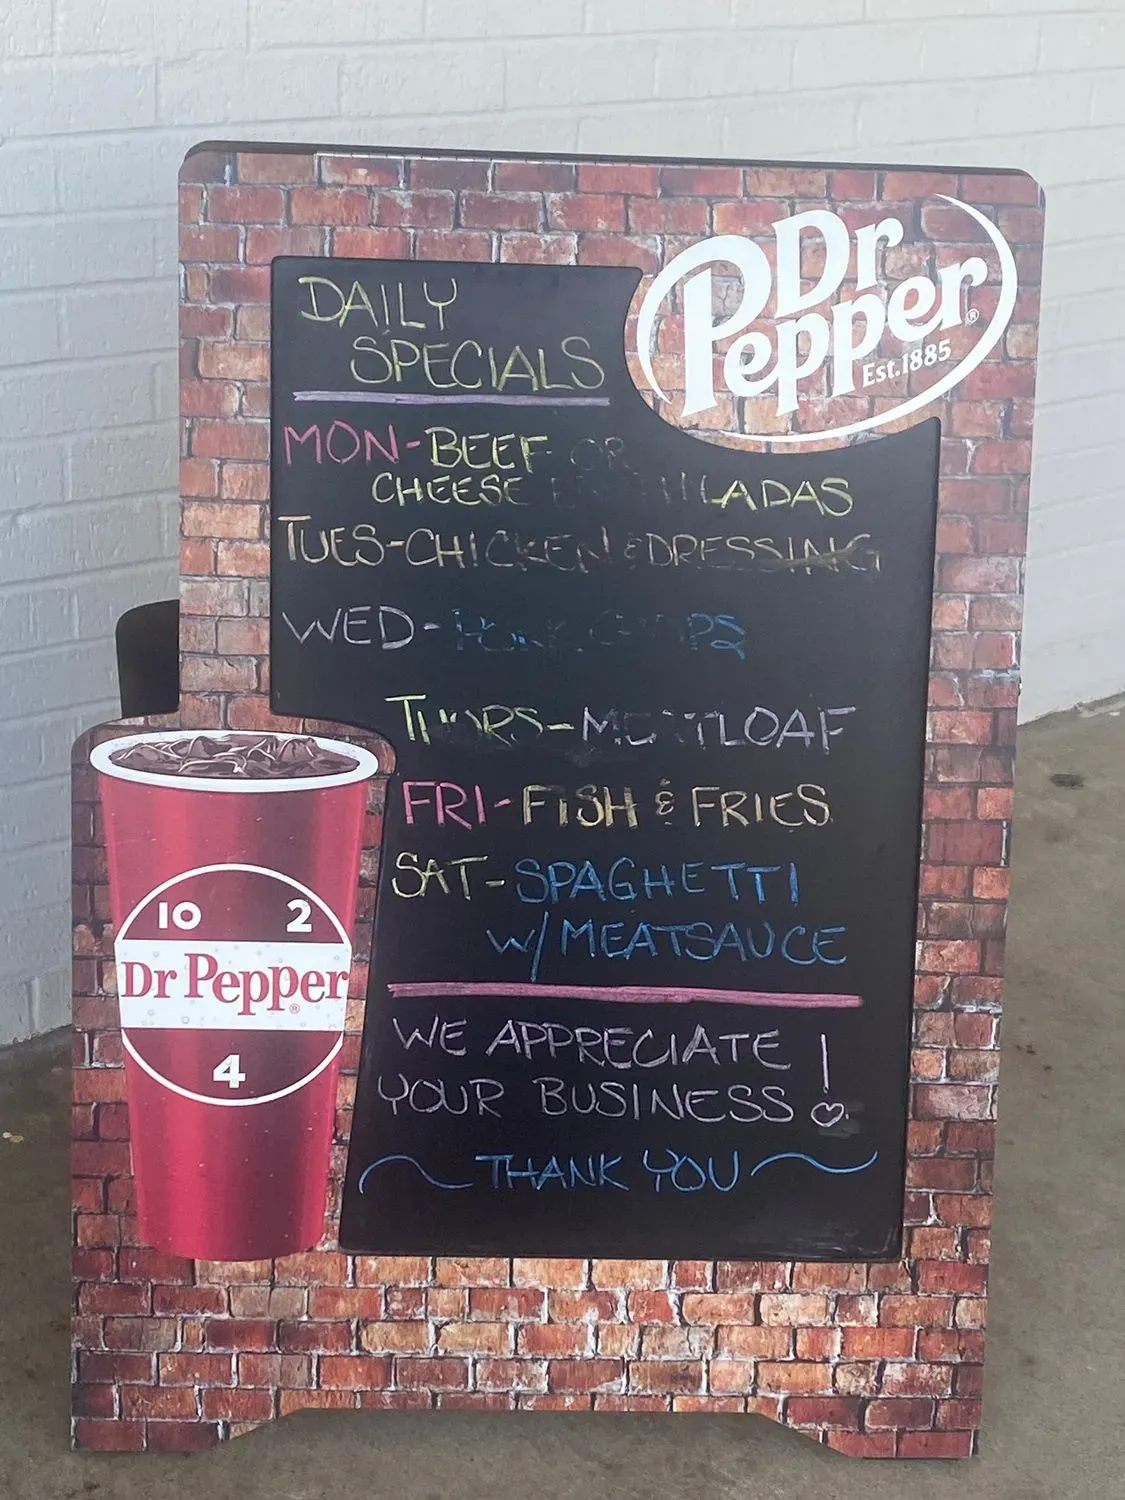 Dr
Pepper®
Est.1885
DAILY
SPECIALS
MON-BEEF OR
CHEESE ENCHILADAS
TUES-CHICKEN & DRESSING
WED- PORK CHOPS
THURS-MEATLOAF
FRI-FISH & FRIES
SAT-SPAGHETTI
W/MEATSAUCE
WE APPRECIATE
YOUR BUSINESS!
~THANK YOU~
10 2
Dr Pepper®
4